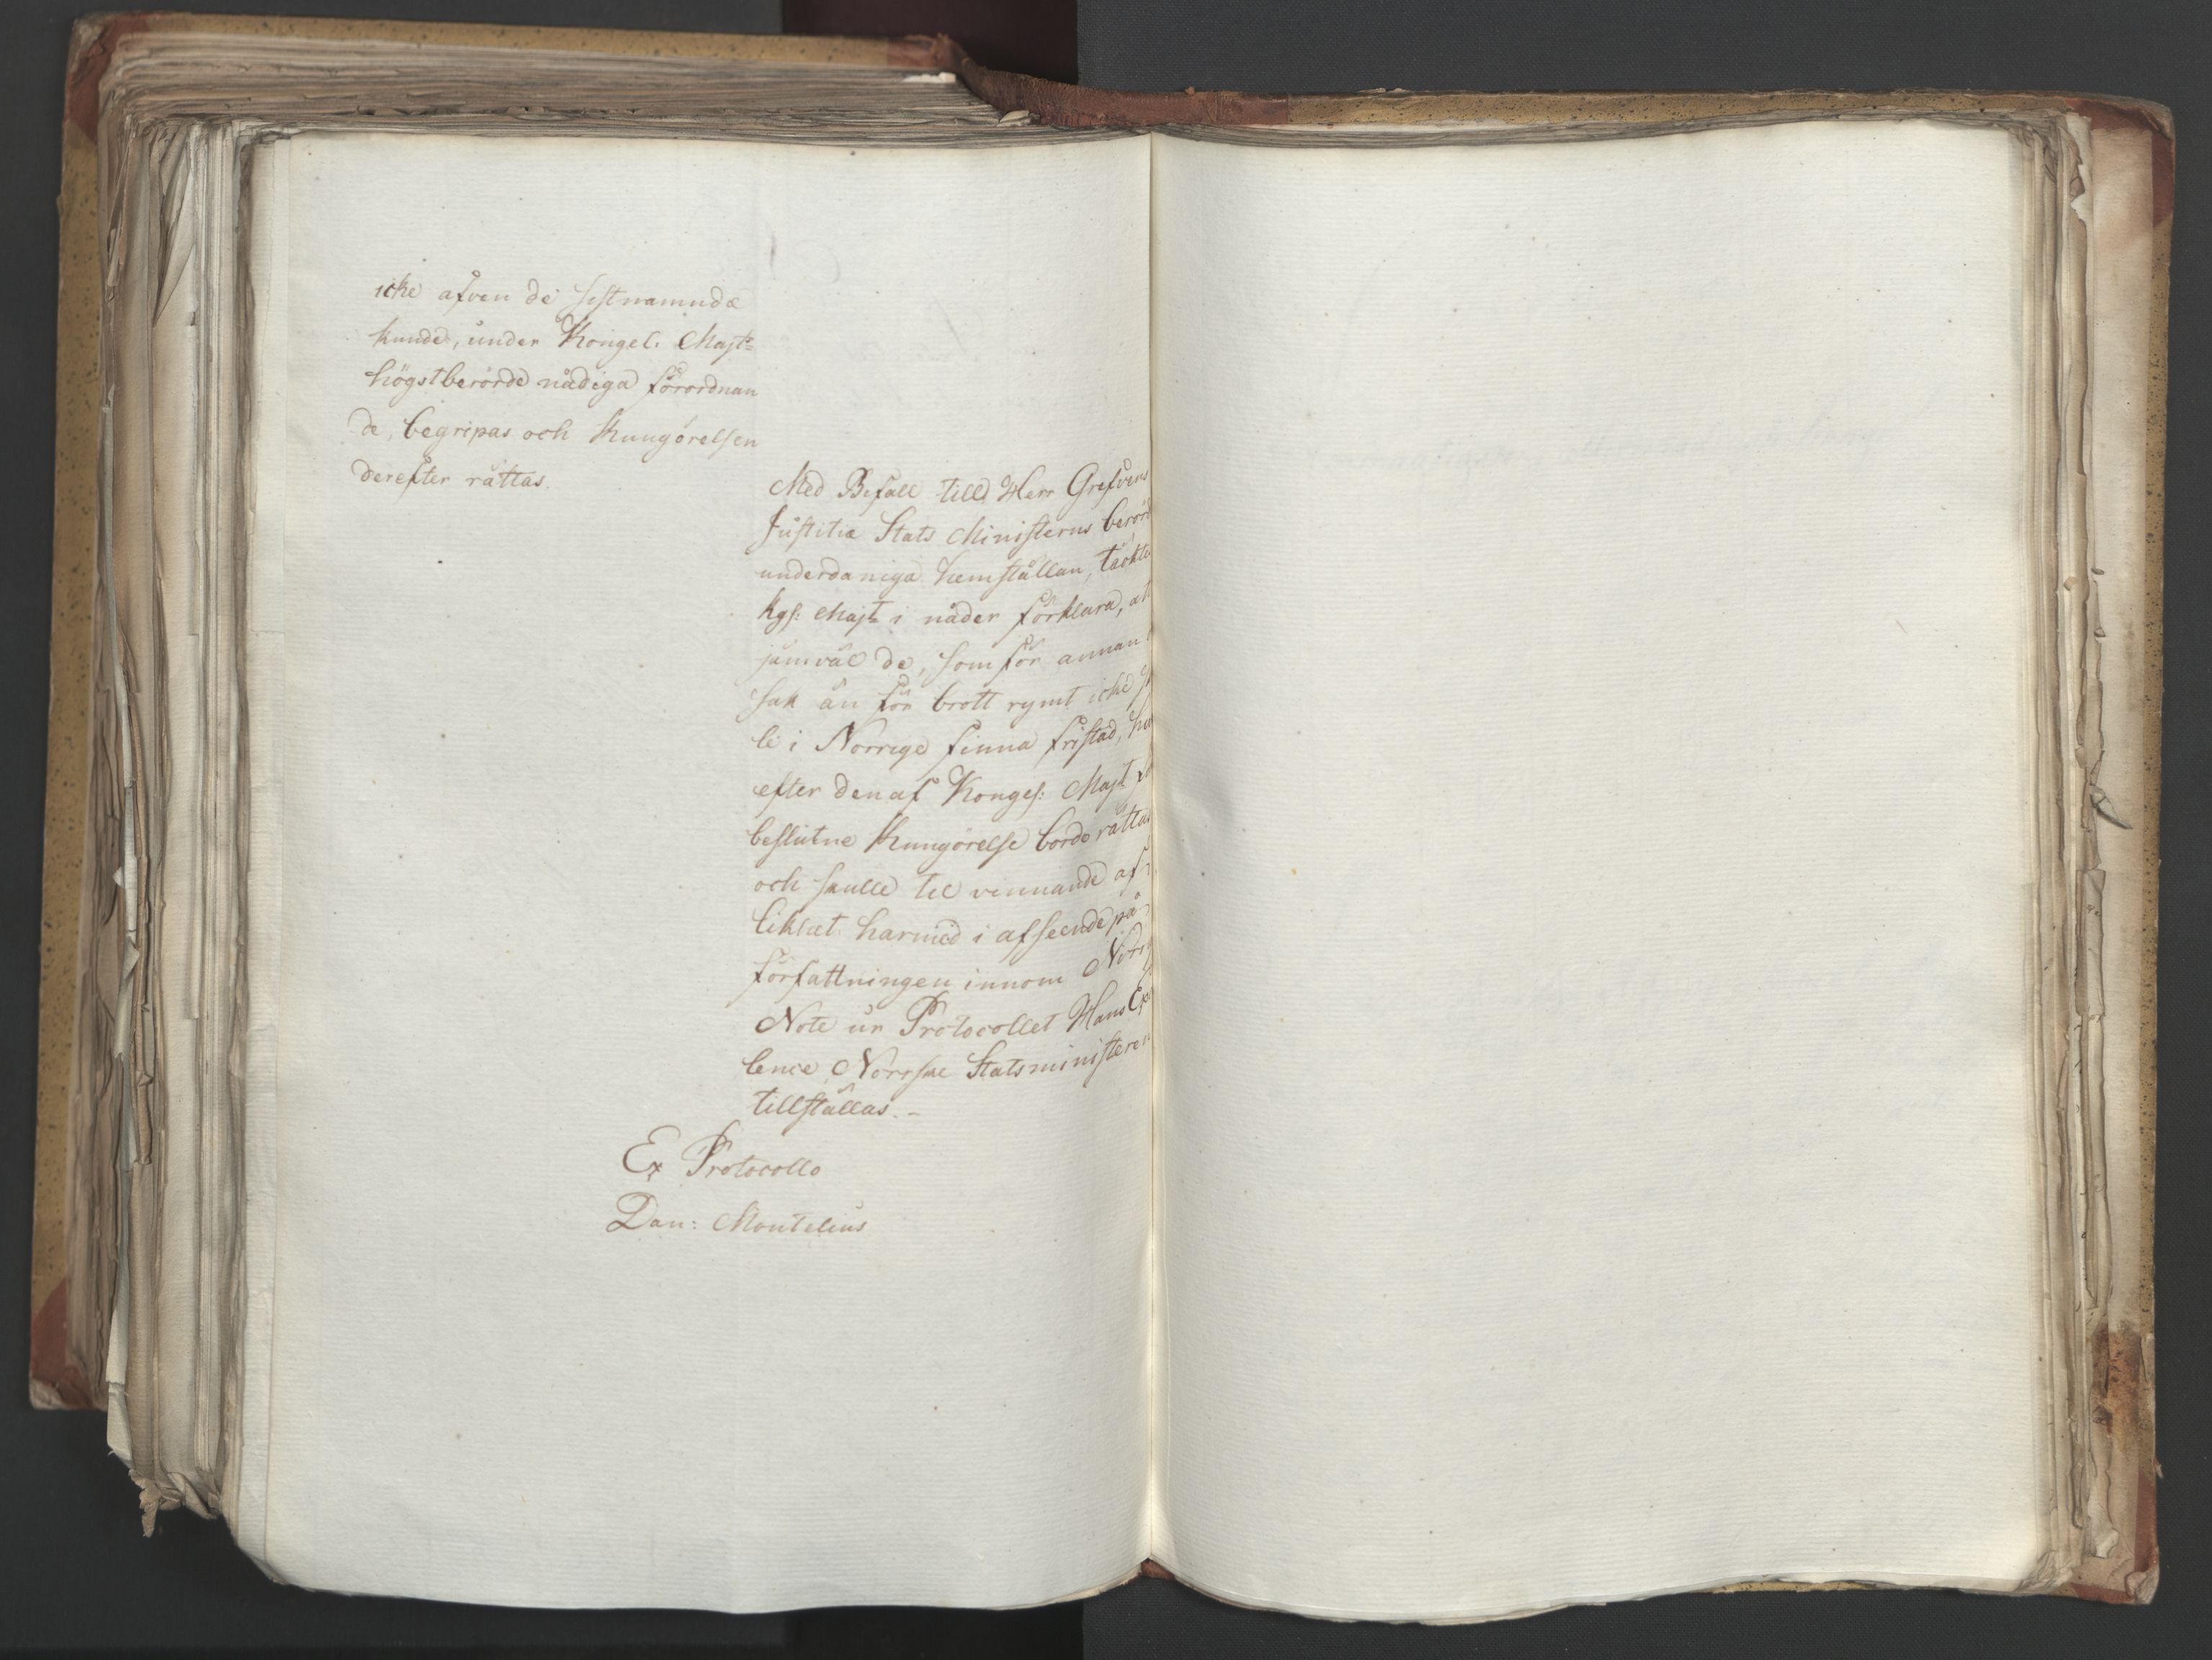 icke afven de sistnamnda
kunde, under Kongel. Majts
högstberörde nådiga förordnan
de, begripas och Kungörelsen
derefter rattas.
Med Bifall till Herr Grefvens
Justitiæ Stats Ministerns berörd
underdaniga hemställan, täckte
kgs: Majt i nåder förklara, at
jämväl de, som för annan
sak än för brott rymt icke
le i Norrige finna fristad,
efter den af Konges: Majt
beslutne Kungörelse borde rättas
och skulle til vinnande af
likhet harmed i afseende på
författningen innom Norri
Note ur Protocollet Hans Exe
lence Norrske Statsministeren
tillställas. -
Ex Protocollo
Dan: Montelius